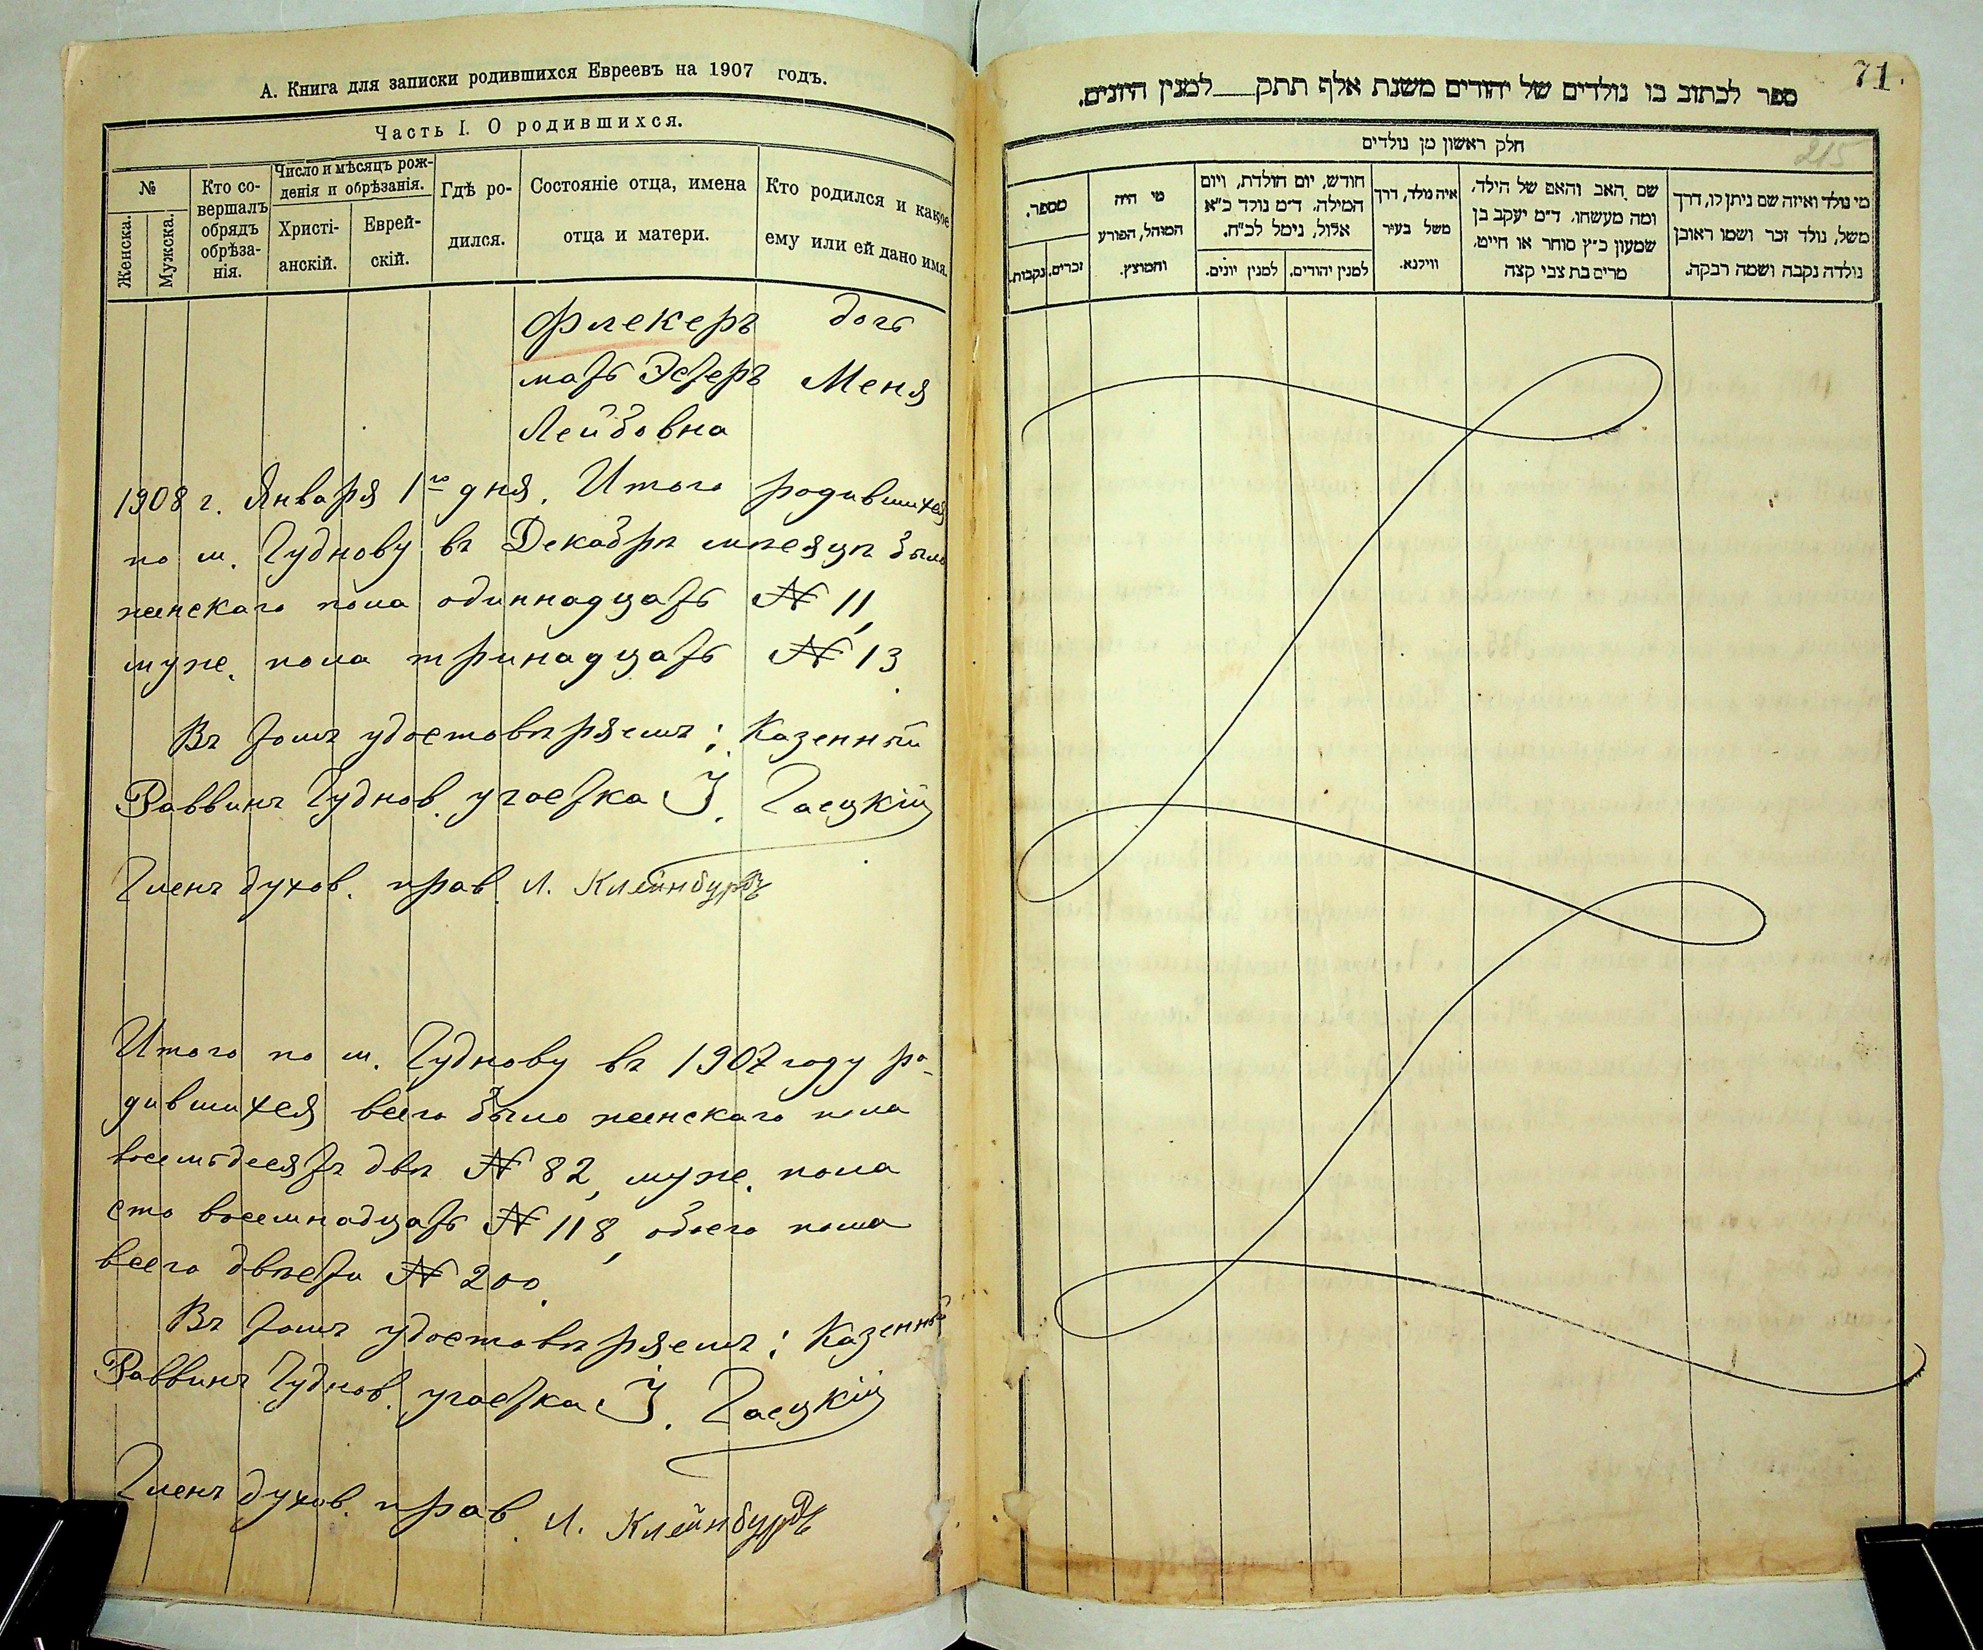 А. Книга для записки родившихся Евреевъ на 1907 годъ.
Часть I. О родившихся.
№
Женска.
Мужска.
Кто со-
вершалъ
обрядъ
обрѣза-
нія.
Число и мѣсяцъ рож-
денія и обрѣзанія.
Христі-
анскій.
Еврей-
скій.
Гдѣ ро-
дился.
Состояніе отца, имена
отца и матери.
Кто родился и какое
ему или ей дано имя.
Флекеръ дочь
мать Эстеръ Меня
Лейбовна
1908 г. Января 1го дня. Итого родившихся
по м. Чуднову въ Декабрѣ мѣсяцѣ было
женскаго пола одиннадцать № 11,
муже. пола тринадцать № 13.
Въ томъ удостовѣряемъ: Казенный
Раввинъ Чуднов. участка І. Часцкій
Членъ духов. прав. Л. Клейнбурдъ
Итого по м. Чуднову въ 1907 году ро-
дившихся всего было женскаго пола
восемьдесятъ двѣ № 82, муже. пола
сто восемнадцать № 118, обоего пола
всего двѣсти № 200.
Въ томъ удостовѣряемъ: Казенный
Раввинъ Чуднов. участка І. Часцкій
Членъ духов. прав. Л. Клейнбурдъ
71.
ספר לכתוב בו נולדים של יהודים משנת אלף תתק___למנין היונים.
215
חלק ראשון מן נולדים
מספר.
נקבות.
זכרים.
מי היה
המוהל, הפורע
והמוצץ.
חודש, יום הולדת, ויום
המילה. ד״מ נולד כ״א
אלול, נימל לכ״ח.
למנין יונים.
למנין יהודים.
איה נולד, דרך
משל בעיר
ווילנא.
שם האב והאם של הילד,
ומה מעשהו. ד״מ יעקב בן
שמעון כ״ץ סוחר או חייט,
מרים בת צבי קצה
מי נולד ואיזה שם ניתן לו, דרך
משל, נולד זכר ושמו ראובן
נולדה נקבה ושמה רבקה.